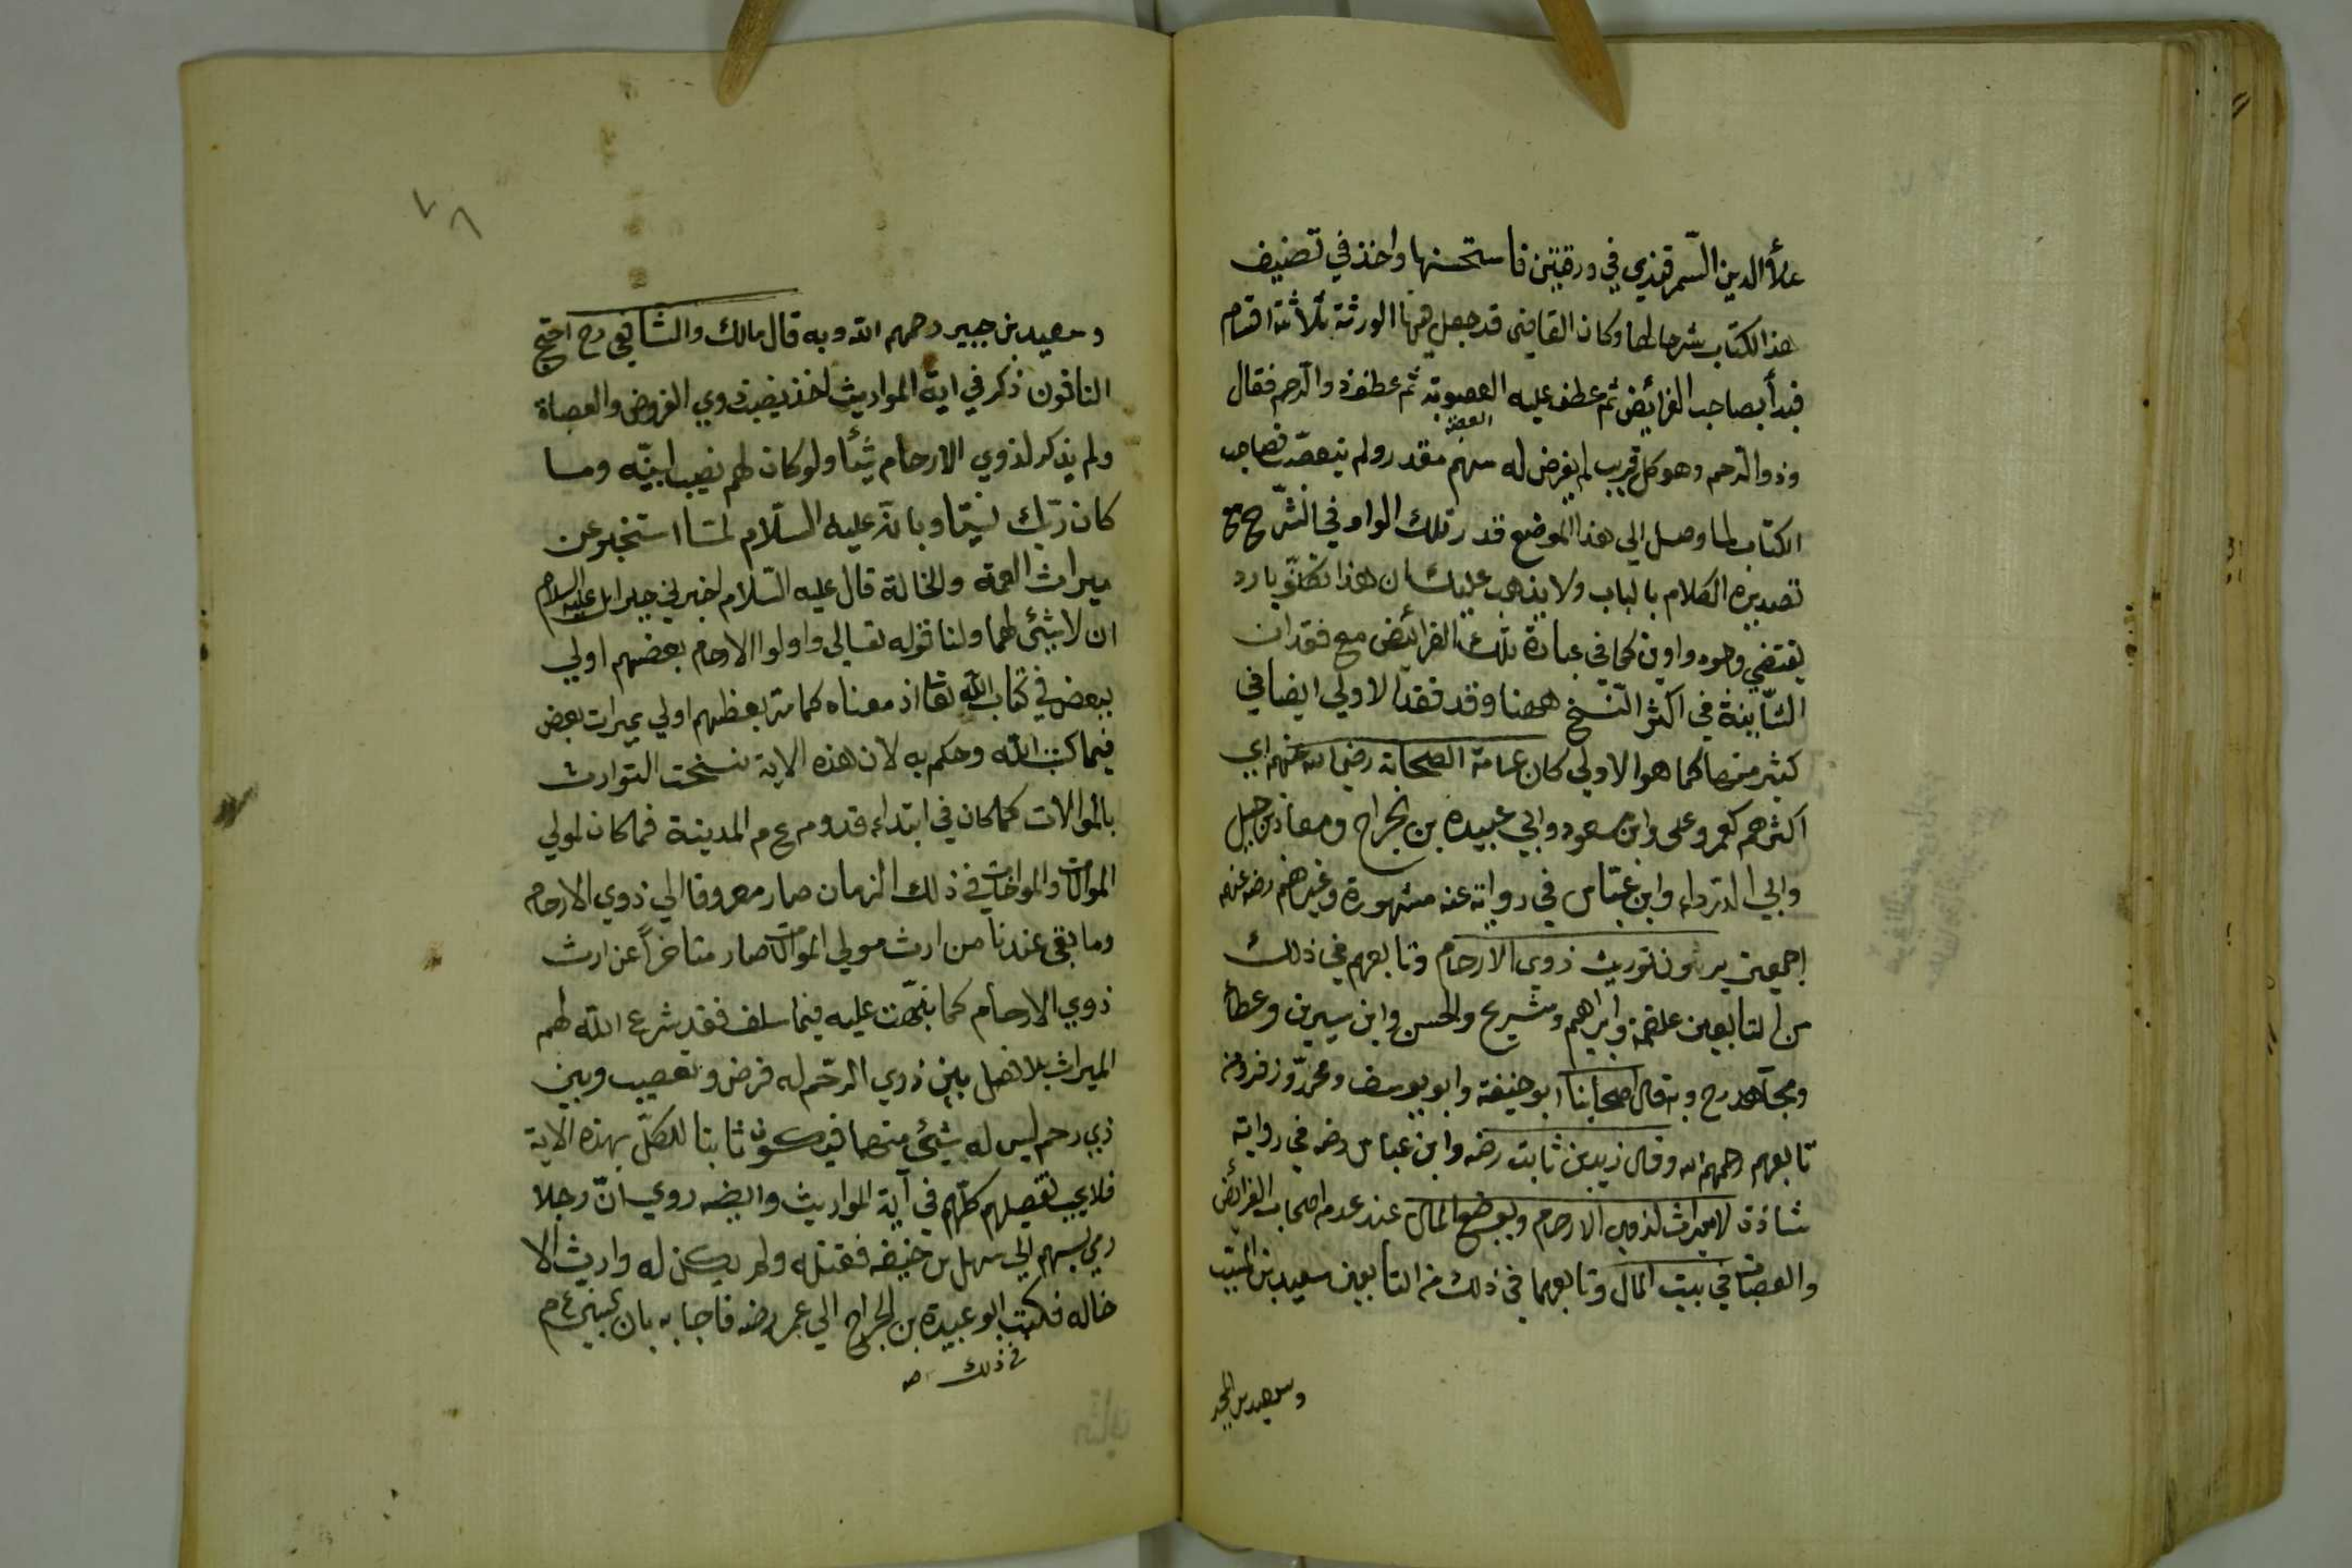 علاء الدين السمرقندي في ورقتين فاستحسنها واخذ في تصنيف
هذا الكتاب شرحا لها وكان القاضى قد جعل ههنا الورثة ثلاثة اقسام
فبدأ بصاحب الفرائض ثم عطف عليه العصوبة ثم عطف ذو الرحم فقال
وذو الرحم وهو كل قريب لم يفرض له سهم مقدر ولم يتعصب فصاحب
الكتاب لما وصل الي هذا الموضع قدر تلك الواو في الشرح مع
تصديره الكلام بالباب ولا يذهب عليك ان هذا تكلف بارد
يقتضي وجود واوين كما في عبارة تلك الفرائض مع فقدان
الثانية في اكثر النسخ ههنا وقد فقد الاولي ايضا في
كثير منها كما هو الاولي كان عامة الصحابة رضي الله عنهم اي
اكثرهم كعمر وعلى وابن مسعود وابي عبيدة بن الجراح ومعاذ بن جبل
وابي الدرداء وابن عباس في رواية عنه مشهورة وغيرهم رضي عنهم
اجمعين يرون توريث ذوي الارحام وتابعهم في ذلك
من التابعين علقمة وابراهيم وشريح والحسن وابن سيرين وعطاء
ومجاهد رح وبه قال اصحابنا ابو حنيفة وابو يوسف ومحمد وزفر ومن
تابعهم رحمهم الله وقال زيد بن ثابت رضه وابن عباس رضه في رواية
شاذة لا ميراث لذوي الارحام ويوضع المال عند عدم اصحاب الفرائض
والعصبات في بيت المال وتابعهما في ذلك من التابعين سعيد بن المسيب
وسعيد بن جبير
٧٨
وسعيد بن جبير رحمهم الله وبه قال مالك والشافعي رح احتج
النافون ذكر في اية المواريث اخذ نصيب ذوي الفروض والعصباة
ولم يذكر لذوي الارحام شيئا ولو كان لهم نصيب لبينه وما
كان ربك نسيا وبانه عليه السلام لما استخبر عن
ميراث العمة والخالة قال عليه السلام اخبرني جبرايل عليه السلام
ان لا شئ لهما ولنا قوله تعالي واولوا الارحام بعضهم اولي
ببعض في كتاب الله تعا اذ معناه كما مر بعظهم اولي بميراث بعض
فيما كتب الله وحكم به لان هذه الاية نسخت التوارث
بالموالات كما كان في ابتداء قدوم ع م المدينة فما كان لمولي
الموالات والمواخات في ذلك الزمان صار مصروفا الي ذوي الارحام
وما بقى عندنا من ارث مولي الموالات صار متاخراً عن ارث
ذوي الارحام كما نبهت عليه فيما سلف فقد شرع الله لهم
الميراث بلا فصل بين ذوي الرحم له فرض وتعصيب وبين
ذي رحم ليس له شئ منهما فيكون ثابتا للكل بهذه الاية
فلا يجب تفصيلهم كلهم في آية المواريث وايضه روي ان رجلا
رمي بسهم الي سهل بن حنيف فقتله ولم يكن له وارث الا
خاله فكتب ابو عبيدة بن الجراح الي عمر رضه فاجابه بان النبي ع م
في ذلك صه